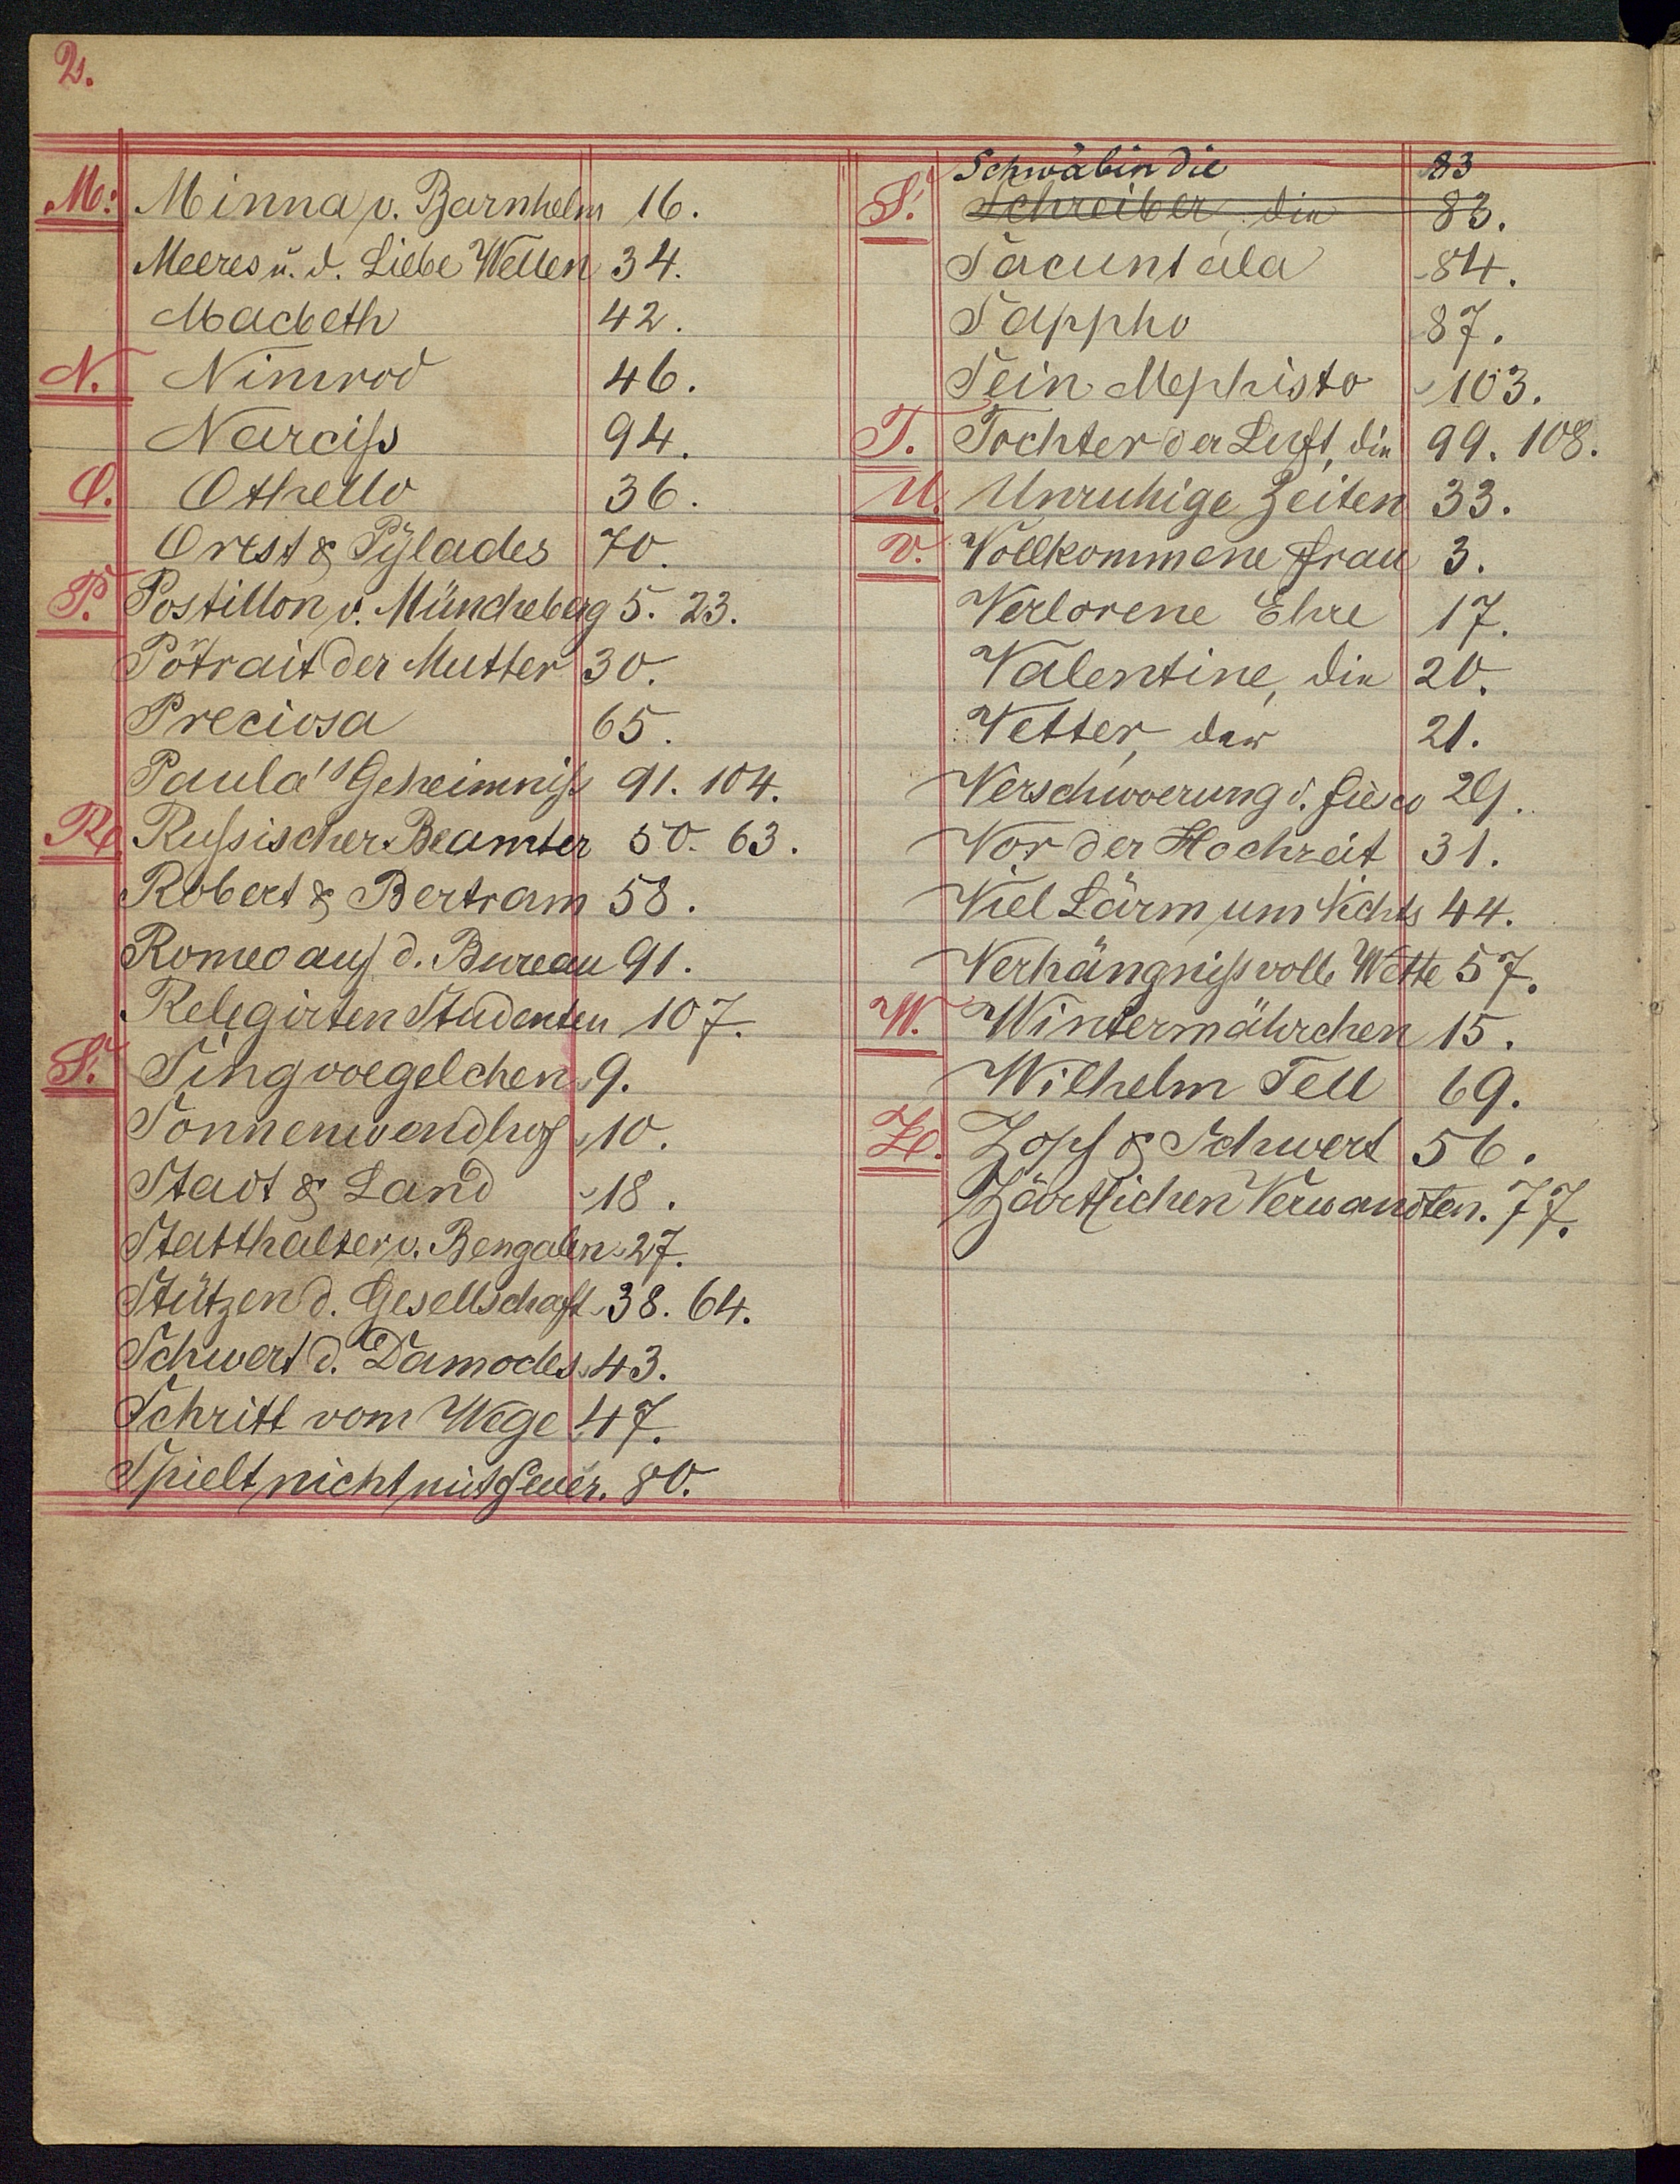 2.
M. Minna v. Barnhelm 16.
Meeres u. d. Liebe Wellen 34.
Macbeth 42.
N. Nimrod 46.
Narciß 94.
O. Othello 36.
Orest & Pÿlades 70.
P. Postillon v. Müncheberg 5. 23.
Potrait der Mutter 30.
Preciosa 65.
Paula's Geheimniß 91. 104.
R. Rußischer Beamter 50. 63.
Robert & Bertram 58.
Romeo auf d. Bureau 91.
Relegirten Studenten 107.
S. Singvoegelchen 9.
Sonnenwendhof 10.
Stadt & Land 18.
Statthalter v. Bengalen 27.
Stützen d. Gesellschaft 38. 64.
Schwert d. Damocles 43.
Schritt vom Wege 47.
Spielt nicht mit Feuer. 80.
Schwäbin die 83
S. Schreiber, die 83.
Sacuntala 84.
Sappho 87.
Sein Mephisto 103.
T. Tochter der Luft, die 99. 108.
U. Unruhige Zeiten 33.
V. Vollkommene Frau 3.
Verlorene Ehre 17.
Valentine, die 20.
Vetter, der 21.
Verschwoerung d. Fiesco 29.
Vor der Hochzeit 31.
Viel Lärm um Nichts 44.
Verhängnißvolle Wette 57.
W. Wintermährchen 15.
Wilhelm Tell 69.
Z. Zopf & Schwert 56.
Zärtlichen Verwandten. 77.